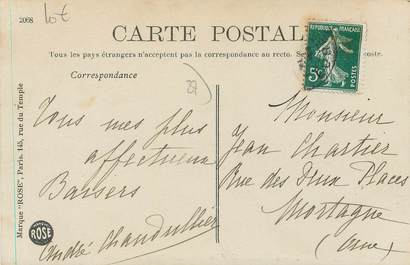 2068
lot
CARTE POSTALE
Tous les pays étrangers n'acceptent pas la correspondance au recto.
Correspondance
RÉPUBLIQUE FRANÇAISE
5c
POSTES
Marque "ROSE", Paris. 145, rue du Temple
ROSE
Tous mes plus
affectueux
Baisers
André
Monsieur
Jean Chartier
Rue des Deux Places
Mortagne
(Orne)